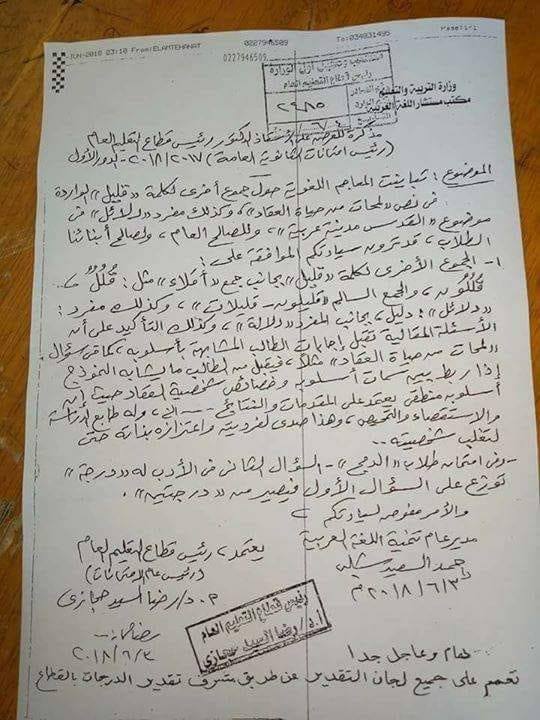 JUN-2018 23:10 From:ELAMTEHANAT 0227946509 To:034831495 Page:1/1
0227946509
وزارة التربية والتعليم
مكتب مستشار اللغة العربية
رئيس قطاع التعليم العام
٢٩٨٥
مذكرة للعرض على الأستاذ الدكتور رئيس قطاع التعليم العام
(رئيس امتحانات الثانوية العامة) ٢٠١٧/٢٠١٨ - الدور الأول
الموضوع: تباينت المعاجم اللغوية حول جمع أخرى لكلمة «قليل» الواردة
في نص «لمحات من حياة العقاد»، وكذلك مفرد «دلائل» في
موضوع «القدس مدينة عربية»، وللصالح العام، ولصالح أبنائنا
الطلاب، قد ترون سيادتكم الموافقة على:
١- الجموع الأخرى لكلمة «قليل» بجانب جمع «أقلاء» مثل: قُلُلٌ
قُلُلُون، والجمع السالم «قليلون - قليلات»، وكذلك مفرد:
«دلائل»: دليل، بجانب المفرد «دلالة»، وكذلك التأكيد على أن
الأسئلة المقالية تقبل إجابات الطالب المشابهة بأسلوبه، كما في سؤال
«لمحات من حياة العقاد» مثلا، فيقبل من الطالب ما يشابه النموذج
إذا ربط بين سمات أسلوبه وخصائص شخصية العقاد حيث إن
أسلوبه منطقي يعتمد على المقدمات والنتائج --- إلخ، وله طابع الدراسة
والاستقصاء والتمحيص، وهذا صدى لفرديته واعتزازه بذاته حتى
لتغلب شخصيته --
- وفي امتحان طلاب «الدمج» - السؤال الثاني في الأدب له «درجة»
توزع على السؤال الأول فيصير من «درجتين».
والأمر مفوض لسيادتكم
مدير عام تنمية اللغة العربية
يعتمد، رئيس قطاع التعليم العام
(رئيس عام الامتحانات)
٢٠١٨/٦/٣م
د/ رضا السيد حجازي
رئيس قطاع التعليم العام
أ.د/ رضا السيد حجازي
٢٠١٨/٦/٣
هام وعاجل جدا
تعمم على جميع لجان التقدير عن طريق مشرف تقدير الدرجات بالقطاع